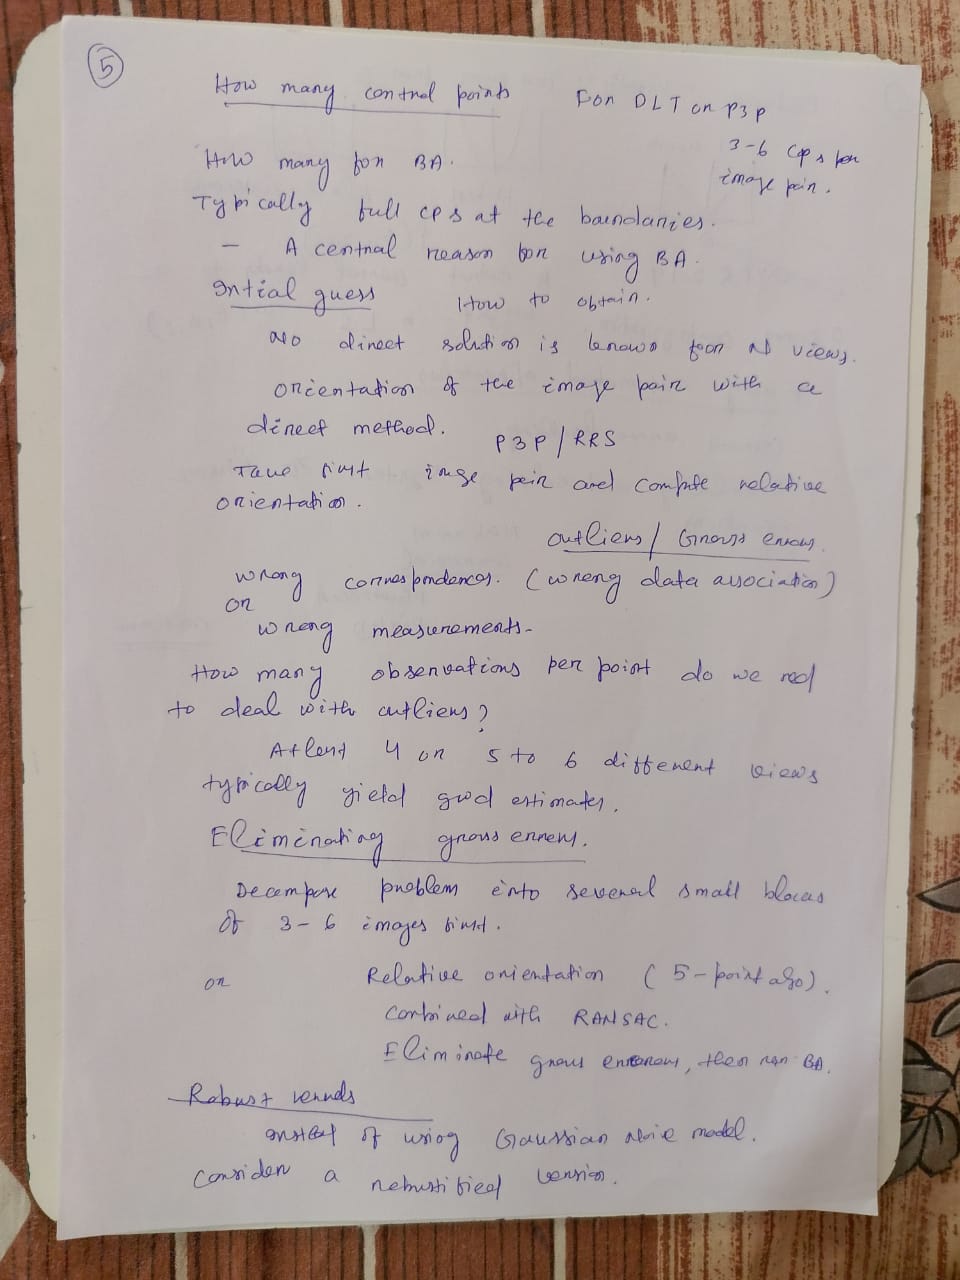 5
How many control points For DLT or P3P
3-6 cps per
image pair.
How many for BA.
Typically full cps at the boundaries.
- A central reason for using BA.
Intial guess How to obtain.
No direct solution is known for N views.
orientation of the image pair with a
direct method. P3P/RRS
Take first image pair and compute relative
orientation.
outliers/ Gross errors.
wrong correspondences. (wrong data association)
or
wrong measurements.
How many observations per point do we need
to deal with outliers?
Atleast 4 or 5 to 6 different views
typically yield good estimates.
Eliminating gross errors.
Decompose problem into several small blocks
of 3-6 images first.
or Relative orientation (5-point algo).
combined with RANSAC.
Eliminate gross errors, then run BA.
Robust kernels
instead of using Gaussian noise model.
Consider a robustified version.